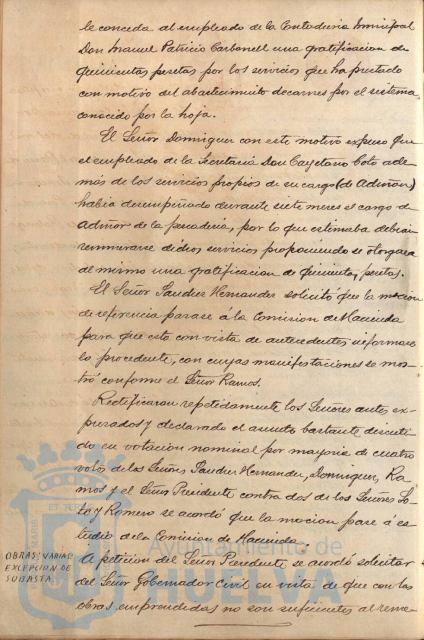 le conceda al empleado de la Contaduria Municipal
Don Manuel Patricio Carbonell una gratificacion de
quinientas pesetas por los servicios que ha prestado
con motivo del abastecimiento de carnes por el sistema
conocido por la hoja.
El Señor Dominguez con este motivo expuso que
el empleado de la Secretaria Don Cayetano Coto ade
mas de los servicios propios de su cargo (de Admõn)
habia desempeñado durante siete meses el cargo de
Admõr de la panaderia, por lo que estimaba debian
remunerarse dichos servicios proponiendo se otorgara
al mismo una gratificacion de quinientas pesetas.
El Señor Sanchez Hernandez solicitó que la mocion
de referencia pasase á la Comision de Hacienda
para que esta con vista de antecedentes informase
lo procedente, con cuyas manifestaciones se mos-
tró conforme el Señor Ramos.
Rectificaron repetidamente los Señores antes ex-
presados y declarado el asunto bastante discuti
do en votacion nominal por mayoria de cuatro
votos de los Señores Sanchez Hernandez, Dominguez, Ra
mos y el Señor Presidente contra dos de los Señores
y Romero se acordó que la mocion pase á es
tudio de la Comision de Hacienda.
OBRAS: VARIAS
EXCEPCION DE
SUBASTA.
A peticion del Señor Presidente se acordó solicitar
del Señor Gobernador Civil en vista de que con las
obras emprendidas no son suficientes al reme-
Ayuntamiento de
HUELVA